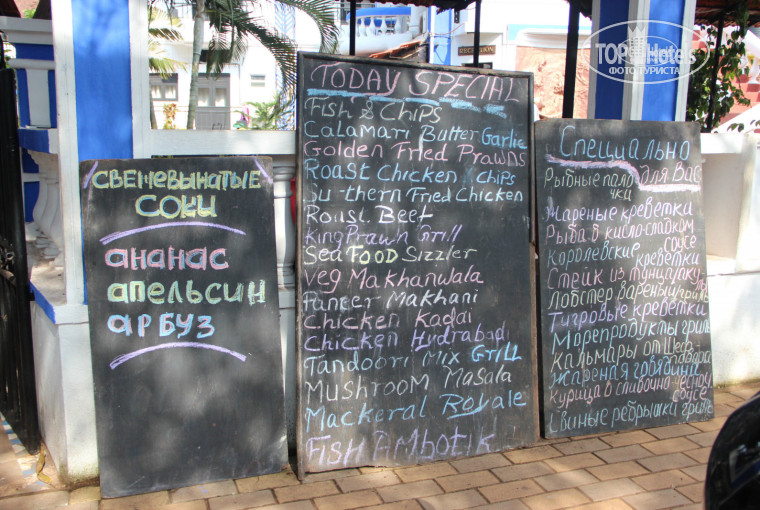 свечевынатые
соки
ананас
апельсин
арбуз
TODAY SPECIAL
Fish & Chips
Calamari Butter Garlic
Golden Fried Prawns
Roast Chicken & Chips
Southern Fried Chicken
Roast Beef
King Prawn Grill
Sea FOOD Sizzler
Veg Makhanwala
Paneer Makhani
Chicken Kadai
Chicken Hydrabad
Tandoori Mix Grill
Mushroom Masala
Mackeral Royale
Fish Ambotik
Специально
для Вас
Рыбные пало
чки
Жареные креветки
Рыба в кисло-сладком
соусе
Королевские креветки
Стейк из тунца
Лобстер вареный гриле
Тигровые креветки
Морепродукты гриль
Кальмары от Шеф
повара
Жареная говядина
Курица в сливочно чесноч
соусе
Свиные ребрышки гриль
RECEPTION
TopHotels
ФОТО ТУРИСТА